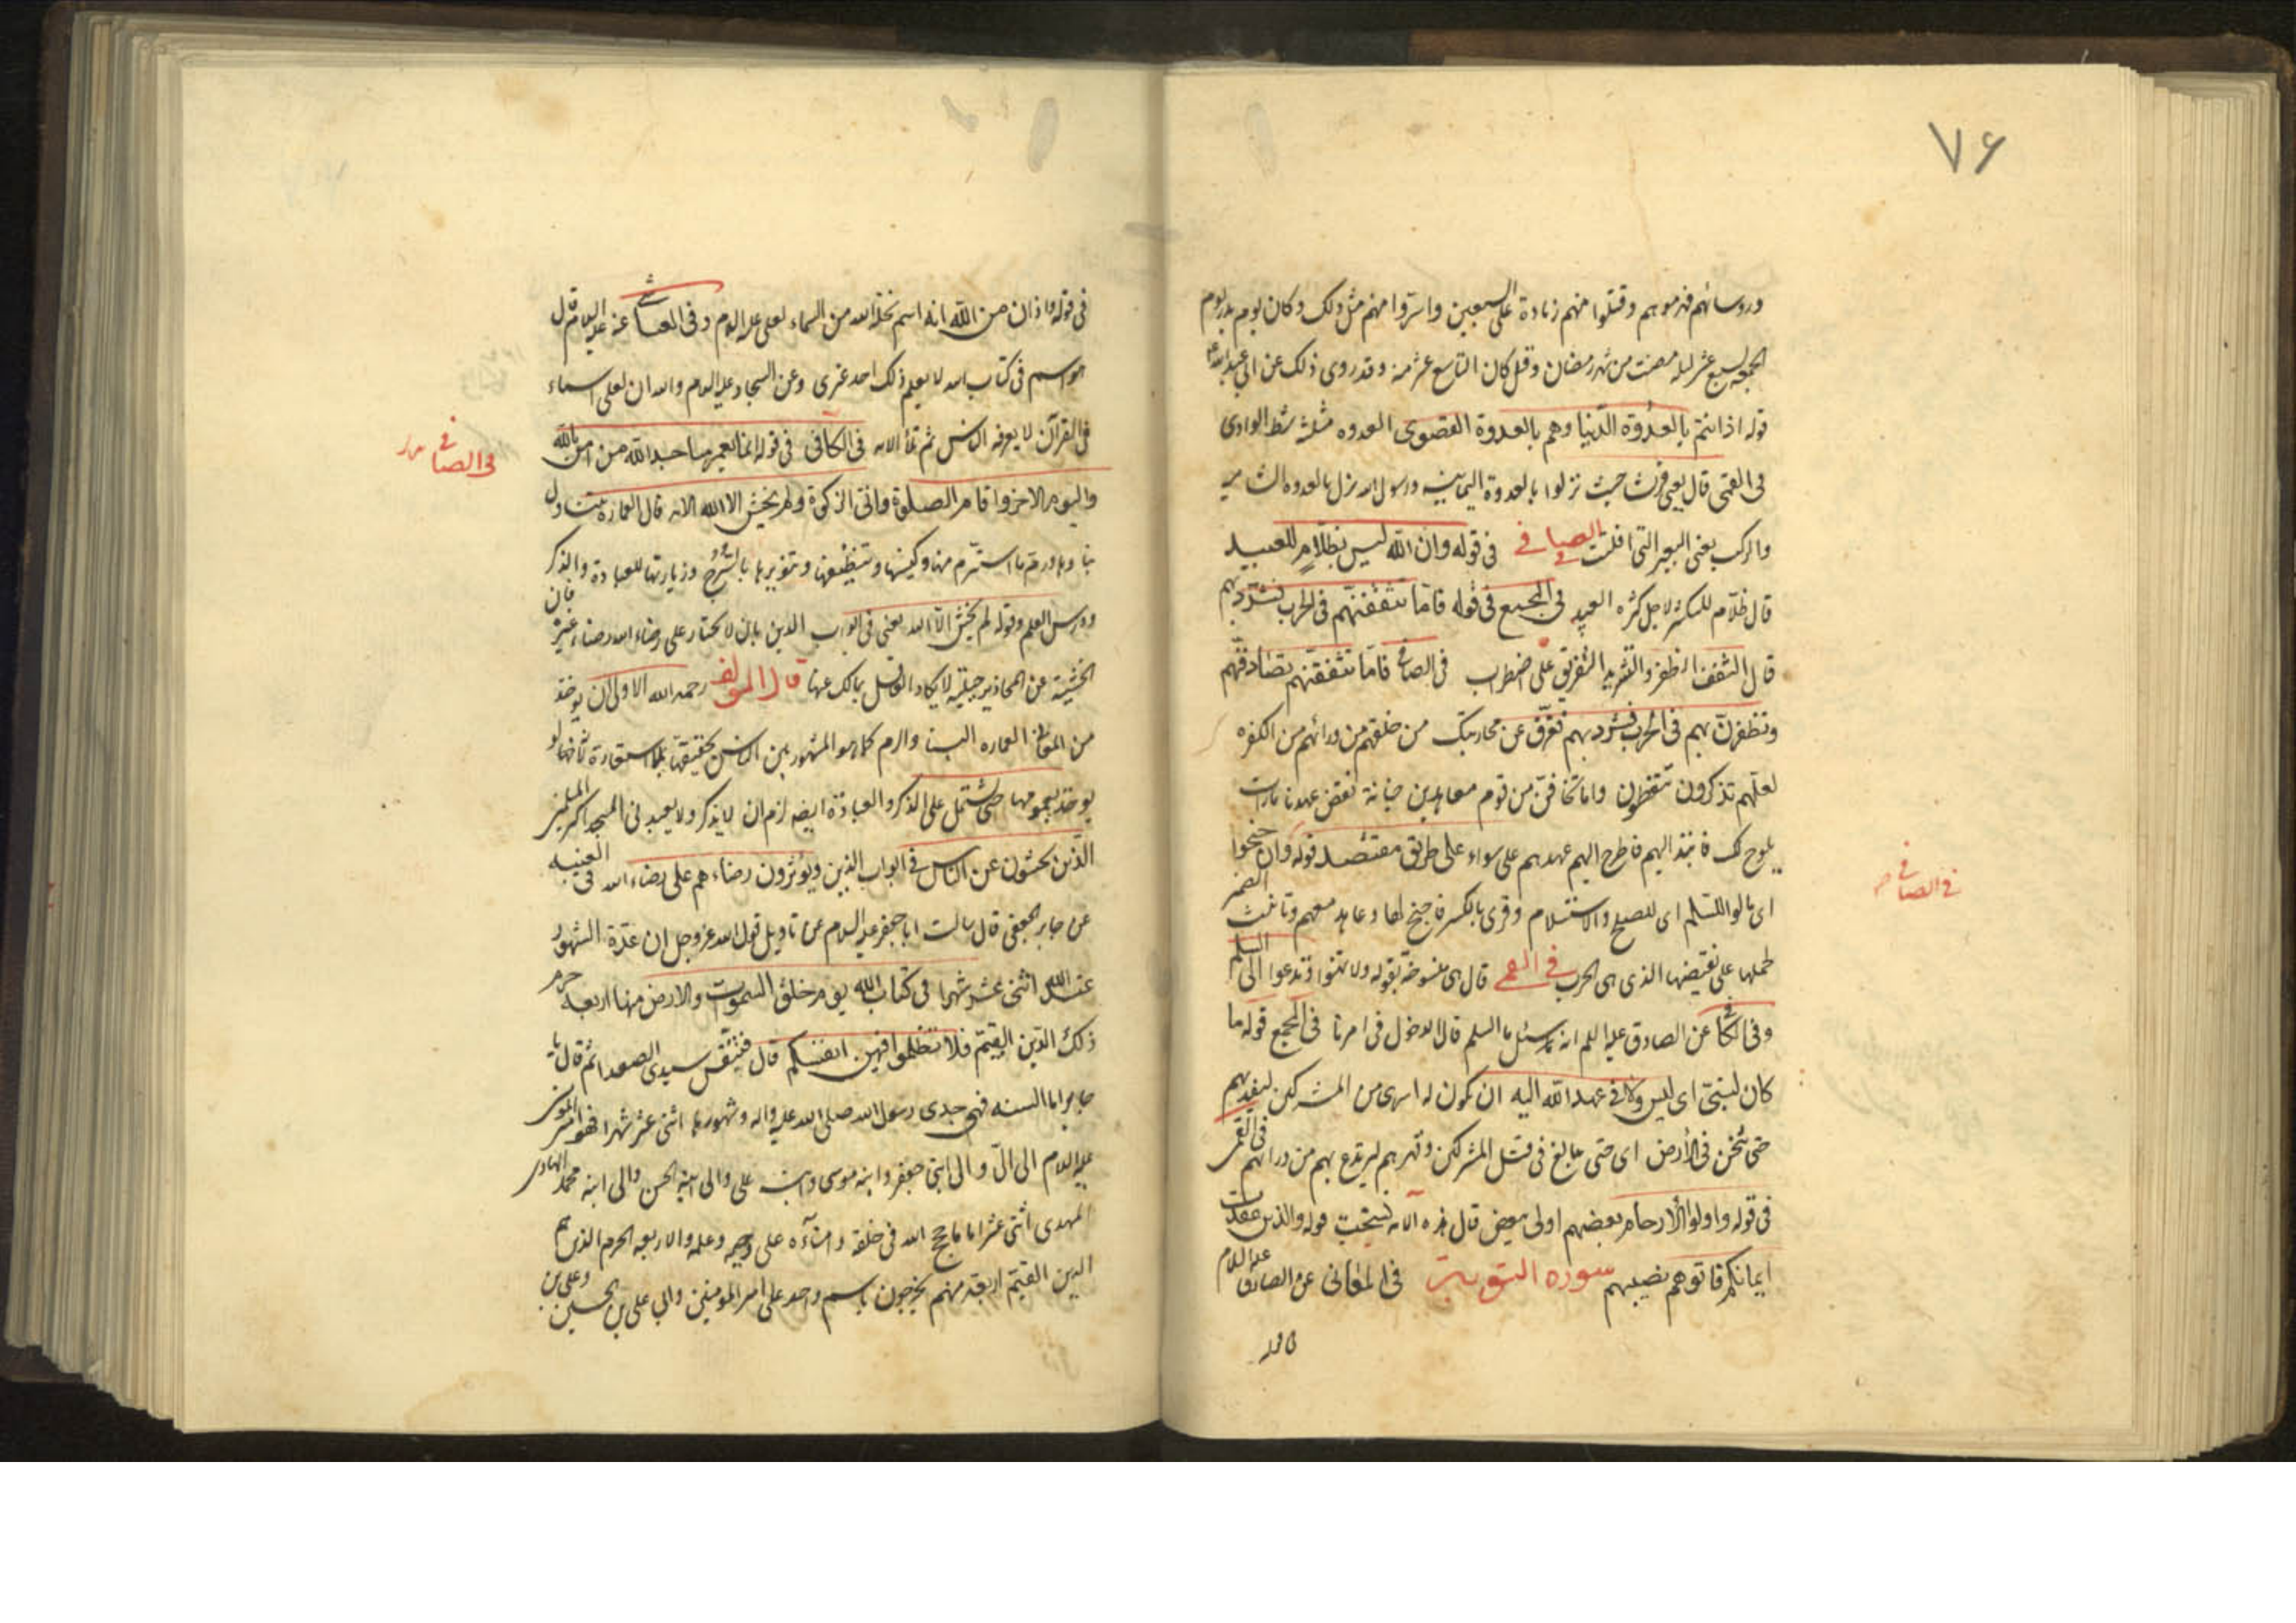 ٧۶
ورؤسائهم فهزموهم وقتلوا منهم زيادة على السبعين واسروا منهم مثل ذلك وكان يوم بدر يوم
الجمعه لسبع عشر ليله مضت من شهر رمضان وقيل كان التاسع عشر منه وقد روى ذلك عن ابي عبد الله ع
قوله اذ انتم بالعدوة الدنيا وهم بالعدوة القصوى العدوه مثلثه شط الوادى
فى القمى قال يعنى قريشا حيث نزلوا بالعدوة اليمانيه ورسول الله نزل بالعدوه الشاميه
والركب يعنى العير التى افلتت فى الصافى فى قوله وان الله ليس بظلام للعبيد
قال ظلام للتكثير لاجل كثره العبيد فى المجمع فى قوله فاما تثقفنهم فى الحرب فشرد بهم
قال الثقف الظفر والتشريد التفريق على اضطراب فى الصافى فاما تثقفنهم تصادفنهم
وتظفرن بهم فى الحرب فشرد بهم ففرق عن محاربتك من خلفهم من ورائهم من الكفره
لعلهم تذكرون تتعظون واما تخافن من قوم معاهدين خيانة نقض عهد بامارات
يلوح لك فانبذ اليهم فاطرح اليهم عهدهم على سواء على طريق مقتصد قوله وان جنحوا
فى الصافى
اى مالوا للسلم اى للصلح والاستسلام وقرى بالكسر فاجنح لها وعاهد معهم وتانيث الضمير
لحملها على نقيضها الذى هى الحرب فى القمى قال هى منسوخة بقوله ولا تهنوا وتدعوا الى السلم
وفى الكافى عن الصادق عليه السلم انه سئل ما السلم قال الدخول فى امرنا فى المجمع قوله ما
كان لنبى اى ليس له فى عهد الله اليه ان يكون له اسرى من المشركين ليفديهم
حتى يثخن فى الأرض اى حتى يبالغ فى قتل المشركين وقهرهم ليرتدع بهم من ورائهم فى القمى
فى قوله واولوا الأرحام بعضهم اولى ببعض قال هذه الايه نسخت قوله والذين عقدت
ايمانكم فاتوهم نصيبهم سورة التوبة فى المعانى عن الصادق عليه السلام
فى قوله
فى قوله واذان من الله انه اسم نحله الله من السماء لعلى عليه السلام وفى العياشى عنه عليه السلام قال
هو اسم فى كتاب الله لا يعلم ذلك احد غيرى وعن السجاد عليه السلام والله ان لعلى اسماء
فى القرآن لا يعرفه الناس ثم تلا الايه فى الكافى فى قوله انما يعمر مساجد الله من امن بالله
فى الصافى
واليوم الاخر واقام الصلوة واتى الزكوة ولم يخش الا الله الايه قال العمارة يتناول
بناوها ورمة ما استرم منها وكنسها وتنظيفها وتنويرها بالسرج وزيارتها للعبادة والذكر
ودرس العلم وقوله لم يخش الا الله يعنى فى ابواب الدين بان لا يختار على رضاء الله رضاء غيره فان
الخشية عن المحاذير جبلية لا يكاد العاقل يمالك عنها قال المؤلف رحمه الله الاولى ان يوخذ
من العماره البناء والرم كما هو المشهور بين الناس حقيقة
يوخذ بعمومها حتى يشتمل على الذكر والعبادة ايضه لزم ان لا يذكر ولا يعبد فى المسجد اكثر المسلمين
الذين يخشون عن الناس فى ابواب الدين ويؤثرون رضاءهم على رضاء الله فى الغيبه
عن جابر الجعفى قال سالت ابا جعفر عليه السلام عن تاويل قول الله عزوجل ان عدة الشهور
عند الله اثنى عشر شهرا فى كتاب الله يوم خلق السموات والارض منها اربعه حرم
ذلك الدين القيم فلا تظلموا فيهن انفسكم قال فتنفس سيدى الصعداء ثم قال يا
جابر اما السنه فهى جدى رسول الله صلى الله عليه واله وشهورها اثنى عشر شهرا فهو امير المومنين
عليه السلام الى الى والى ابنى جعفر وابنه موسى وابنه على والى ابنه الحسن والى ابنه محمد الهادى
المهدى اثنى عشر اماما حجج الله فى خلقه وامنآءه على وحيه وعلمه والاربعه الحرم الذين هم
الدين القيم اربعة منهم يخرجون باسم واحد على امير المومنين وابى على بن الحسين وعلى بن